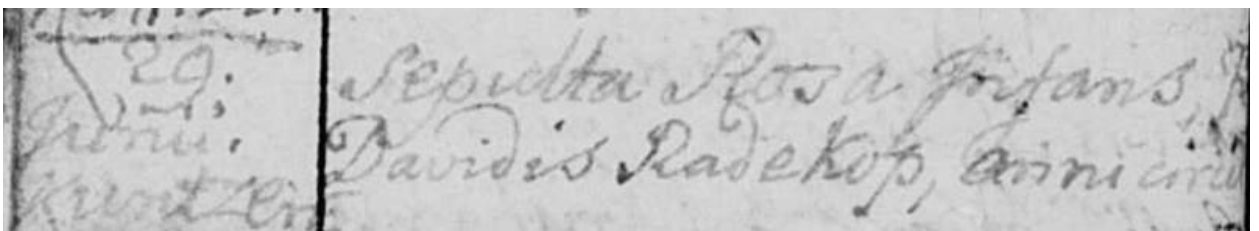 29.
Junii.
Kuntzen
Sepulta Rosa Infans,
Davidis Radekop, anni